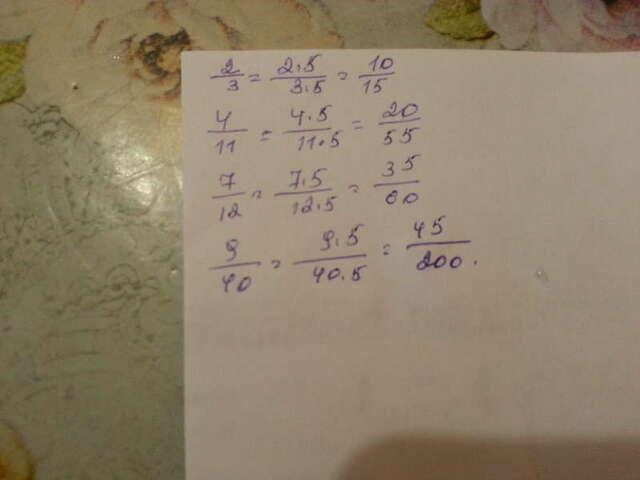 2/3 = 2·5/3·5 = 10/15
4/11 = 4·5/11·5 = 20/55
7/12 = 7·5/12·5 = 35/60
9/40 = 9·5/40·5 = 45/200.